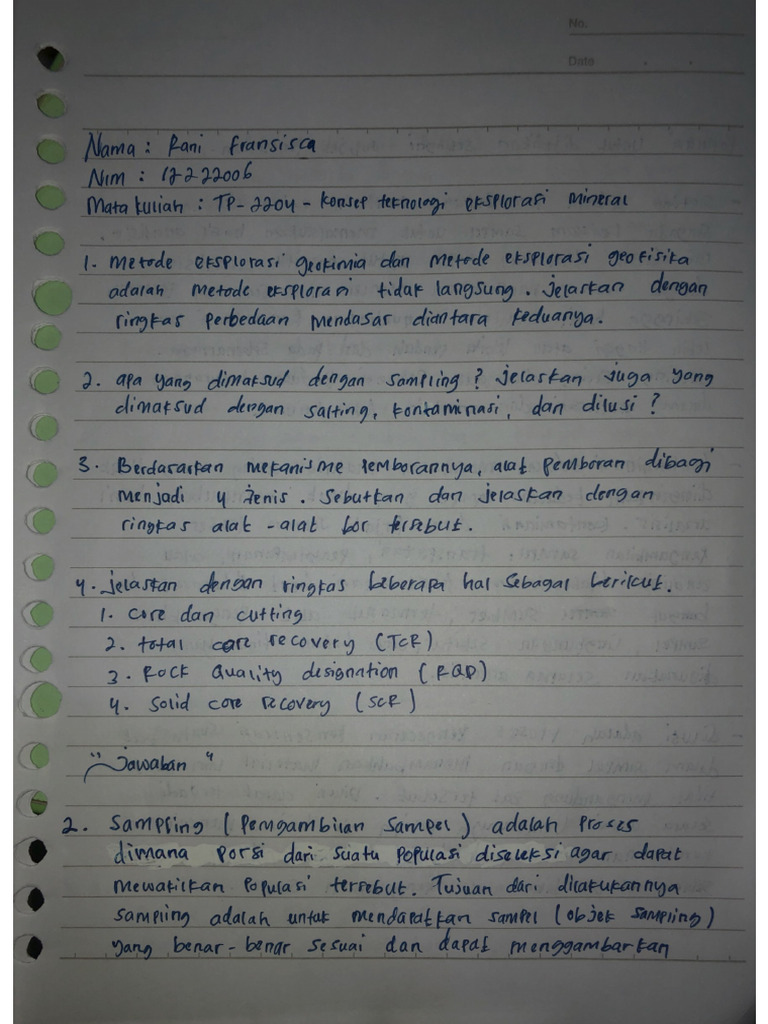 No.
Date
Nama : Rani Fransisca
Nim : 12222006
Mata kuliah : TP-2204 - Konsep teknologi eksplorasi mineral
1. Metode eksplorasi geokimia dan metode eksplorasi geofisika
adalah metode eksplorasi tidak langsung. Jelaskan dengan
ringkas perbedaan mendasar diantara keduanya.
2. apa yang dimaksud dengan sampling? jelaskan juga yang
dimaksud dengan salting, kontaminasi, dan dilusi?
3. Berdasarkan mekanisme pemborannya, alat pemboran dibagi
menjadi 4 jenis. Sebutkan dan jelaskan dengan
ringkas alat-alat bor tersebut.
4. jelaskan dengan ringkas beberapa hal sebagai berikut.
1. core dan cutting
2. total core recovery (TCR)
3. Rock Quality designation (RQD)
4. Solid core recovery (SCR)
"Jawaban"
2. Sampling (Pengambilan Sampel) adalah Proses
dimana porsi dari suatu populasi diseleksi agar dapat
mewakilkan populasi tersebut. Tujuan dari dilakukannya
sampling adalah untuk mendapatkan sampel (objek sampling)
yang benar-benar sesuai dan dapat menggambarkan